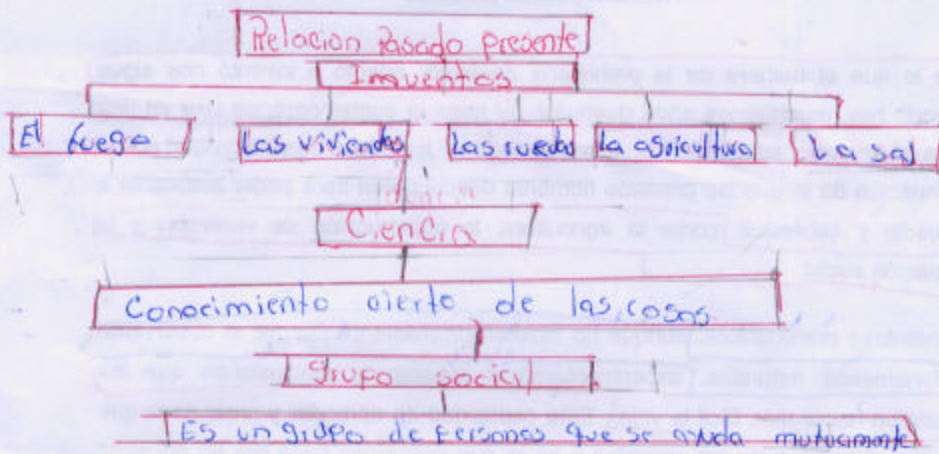 Relacion Pasado presente
Imventos
El fuego Las viviendas Las ruedas la agricultura La sal
Ciencia
Conocimiento cierto de las cosas
grupo social
Es un grupo de personas que se ayuda mutuamente